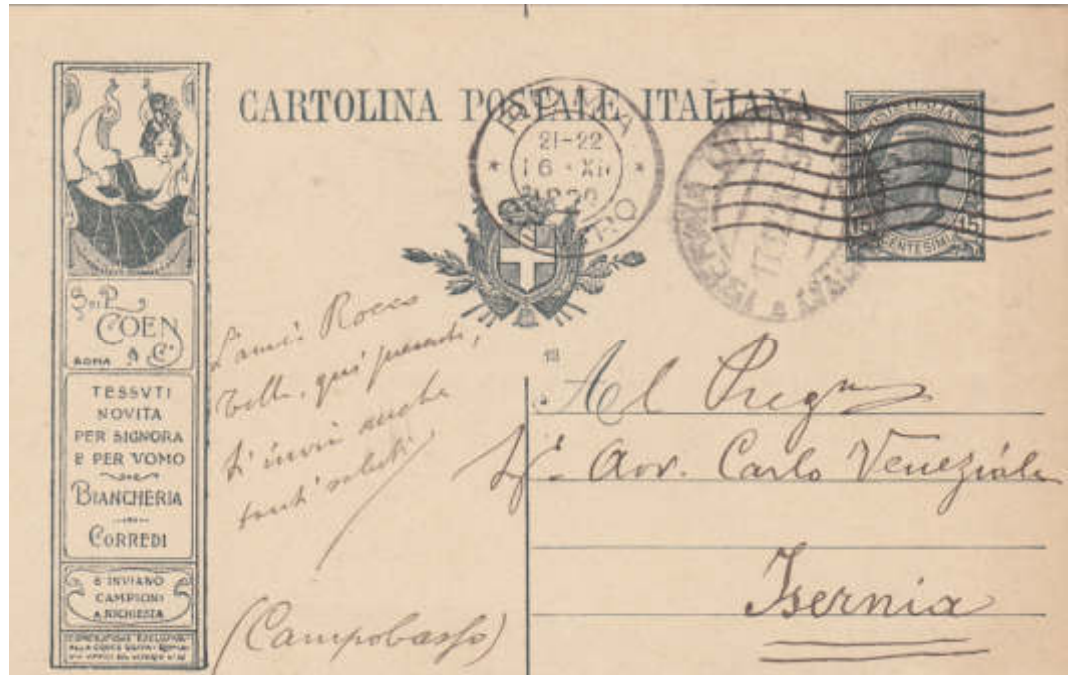 CARTOLINA POSTALE ITALIANA
ROMA
21-22
16·XII
CENTRO
ISERNIA
15
CENTESIMI
S.ri P.
COEN
& C.
ROMA
TESSVTI
NOVITA
PER SIGNORA
E PER VOMO
BIANCHERIA
CORREDI
INVIANO
CAMPIONI
A RICHIESTA
L'amico Rocco
qui presente,
ti invia anche
tanti saluti
(Campobasso)
13
Al Preg
Avv. Carlo Veneziale
Isernia